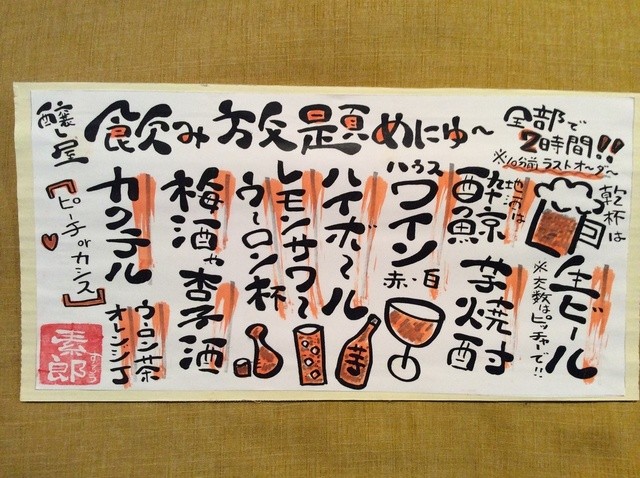 醸し屋
飲み放題めにゅ~
全部で
2時間!!
※10分前ラストオ~ダ~
乾杯は
生ビール
※大数はピッチャーで!!
地酒は
酔鯨
芋焼酎
ハウス
ワイン
赤・白
ハイボ~ル
レモンサワ~
ウ~ロン杯
梅酒や
杏子酒
カクテル
[ピーチorカシス]
ウ~ロン茶
オレンジJ
素郎
芋